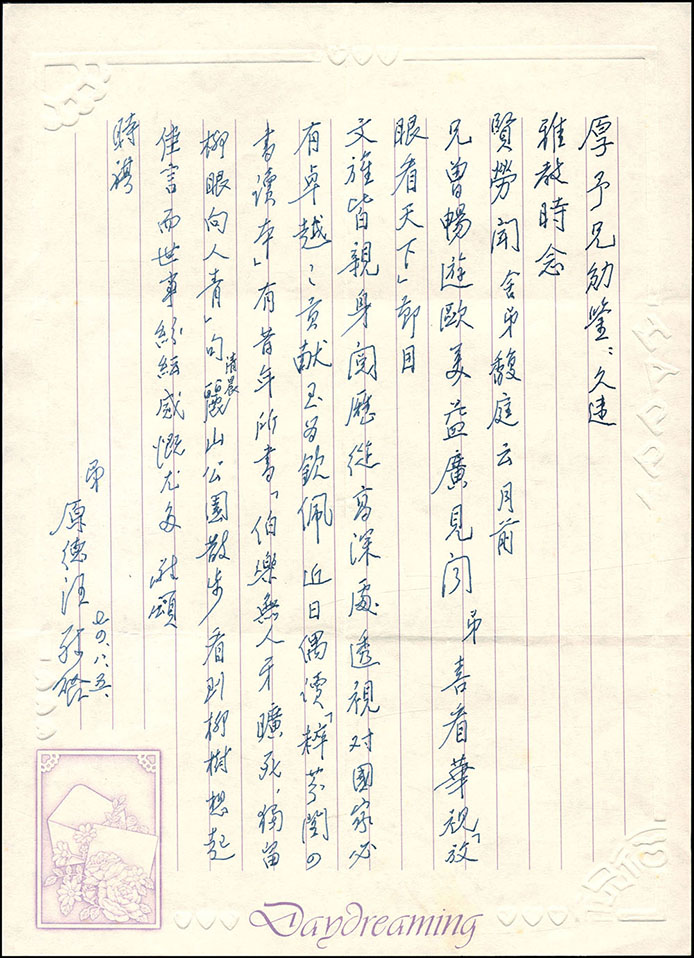 厚予兄勛鑒：久違
雅教時念
賢勞聞舍弟馥庭云月前
兄曾暢遊歐美益廣見聞弟喜看華視「放
眼看天下」節目
文旌皆親身閱歷從高深處透視对國家必
有卓越之貢献至爲欽佩近日偶读「粹芬閣の
書读本」有昔年所書「伯樂無人牙曠死，獨留
柳眼向人青」句麗山公園散步看到柳樹想起
清晨
佳言而世事紛紜感慨尤多 敬頌
時祺
弟
厚德 敬啓
七四、八、五、
Daydreaming